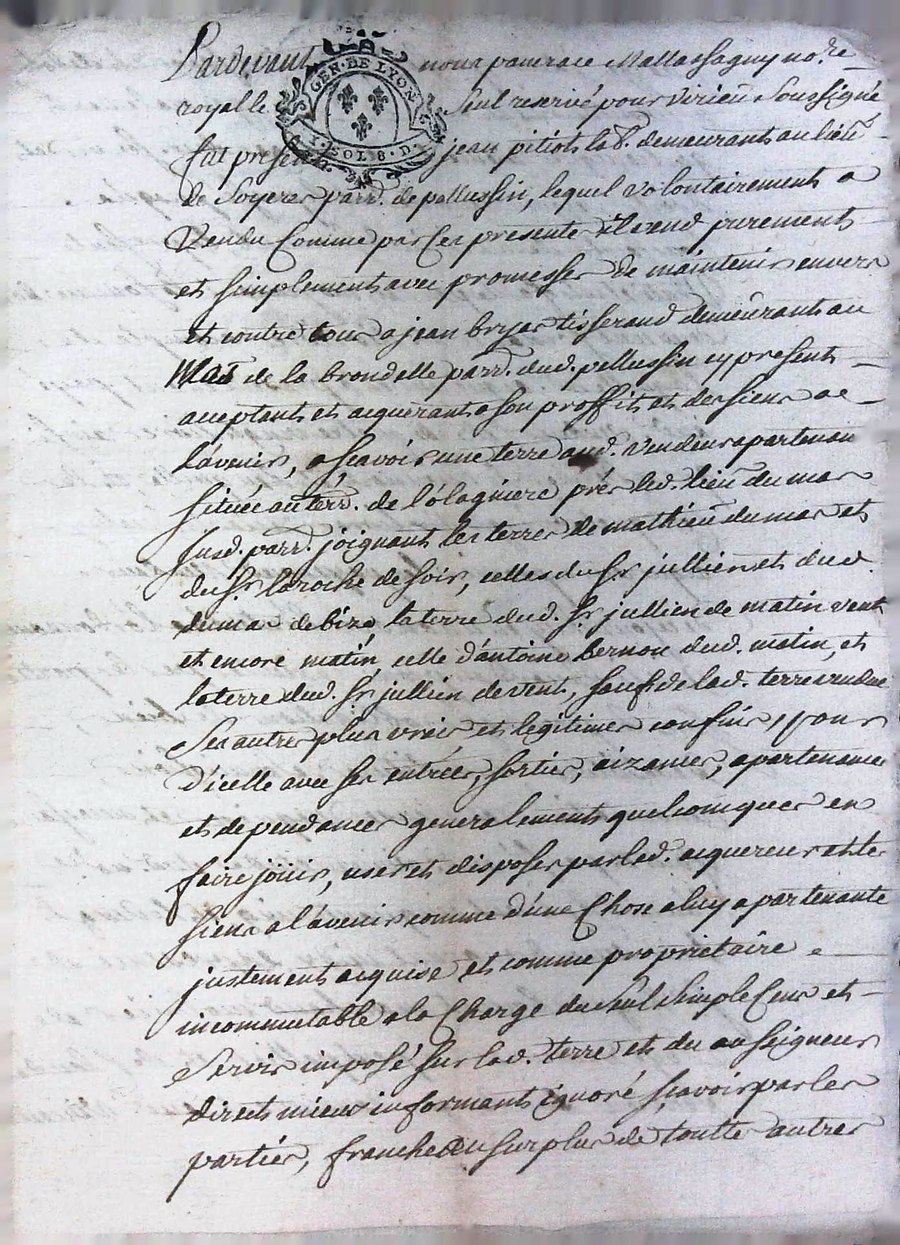 Pardevant nous pancrace Mallassagny no.re
GEN. DE LYON
I. SOL 8. D.
royal le seul reservé pour virieu soussigné
fut present jean pitiot lab. demeurant au lieu
de Soyeres parr. de pellussin, lequel volontairement a
Vendu Comme par ces presente il vend purement
et simplement avec promesses de maintenir envers
et contre tous a jean bryas tisserand demeurant au
Mas de la brondelle parr. dud. pellussin cy present
acceptant et acquerant a son proffit et des siens a
l'avenir, a sçavoir une terre aud. vendeur apartenan
située au terr. de l'olagniere prés led. lieu du mas
susd. parr. joignant les terres de mathieu dumas et
du sr. laroche de soir, celles du sr. jullien et dud.
dumas de bize, la terre dud. sr. jullien de matin vent
et encore matin, celle d'antoine bernou dud. matin, et
la terre dud. sr. jullien de vent, sauf de lad. terre vendue
ses autres plus vrais et legitimes confins, pour
d'icelle avec ses entrées, sorties, aizances, apartenance
et dependances generalement quelconques en
faire joüir, user et disposer par led. acquereur et les
siens a l'avenir comme d'une Chose a luy apartenante
justement acquise et comme proprietaire
incommutable a la Charge du seul simple Cens et
servis imposé sur lad. terre et du au seigneur
direct mieux informant ignoré sçavoir par les
parties, franche au surplus de toutte autres